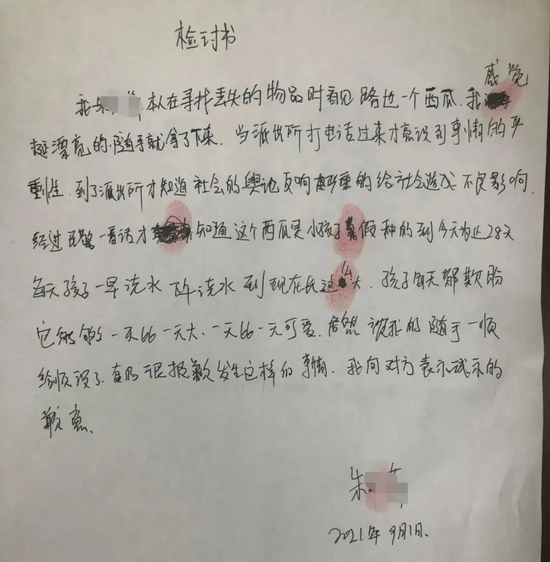 检讨书
我朱 本人在寻找丢失的物品时看见路边一个西瓜,我感觉
挺漂亮的随手就拿了下来。当派出所打电话过来才意识到事情的严
重性。到了派出所才知道社会的舆论反响 严重的给社会造成不良影响。
经过民警一番话才 知道这个西瓜是小孩子暑假种的到今天为止28天
每天孩子一早浇水 下午浇水 到现在长这么大。孩子每天都期盼
它能够一天比一天大、一天比一天可爱。居然被我的随手一顺
给顺没了。真的很抱歉发生这样的事情。我向对方表示诚示的
歉意。
朱
2021.年9月1日.